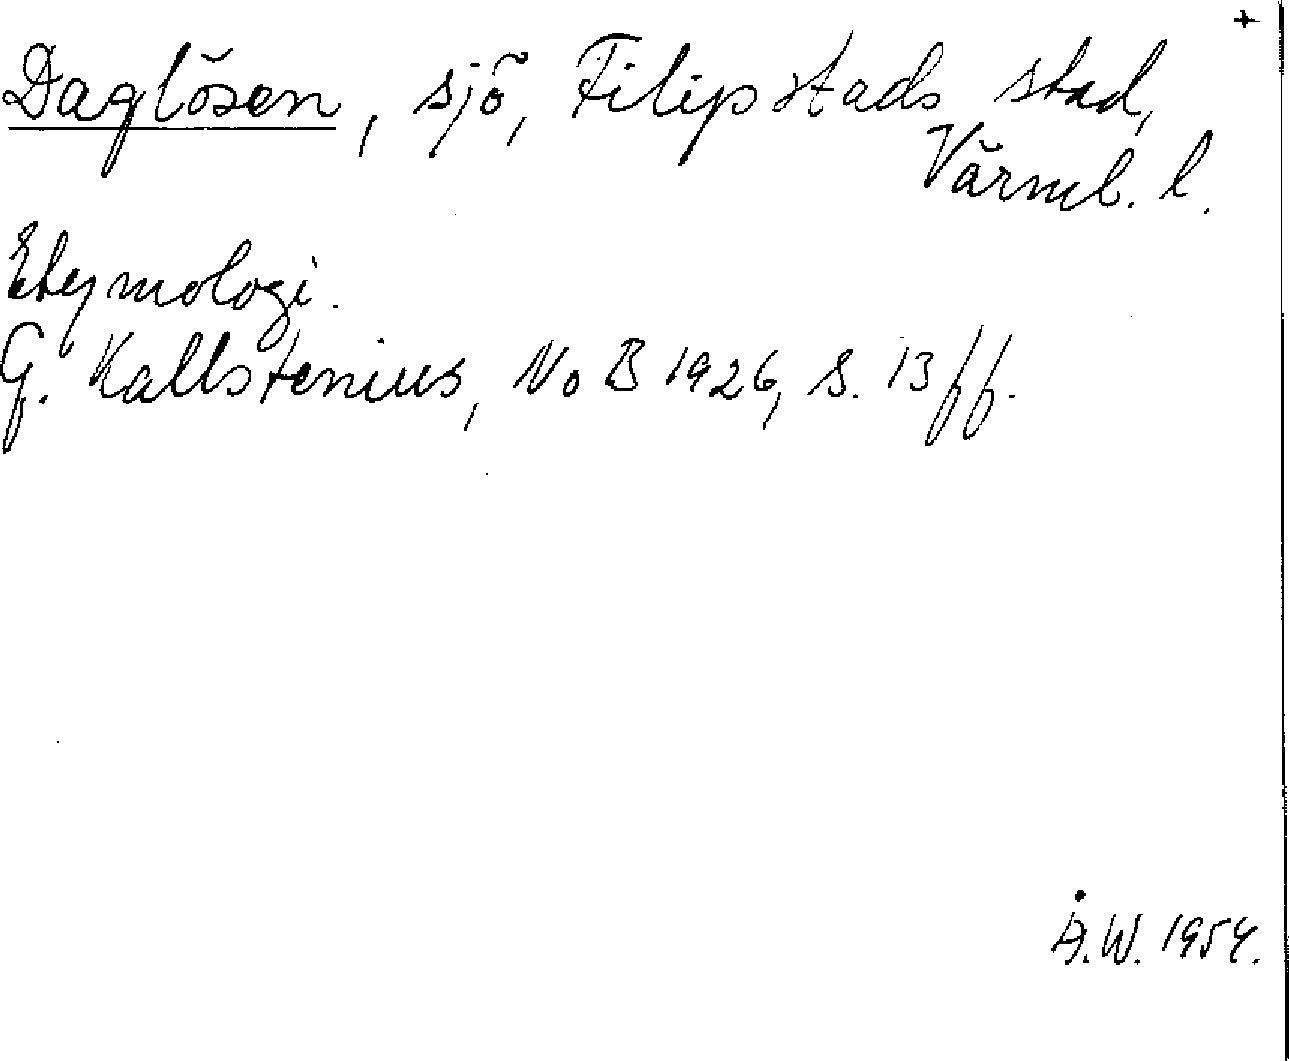 +
Daglösen, sjö, Filipstads stad,
Värml. l.
Etymologi.
G. Kallstenius, NoB 1926, s. 13 ff.
Å.W. 1954.